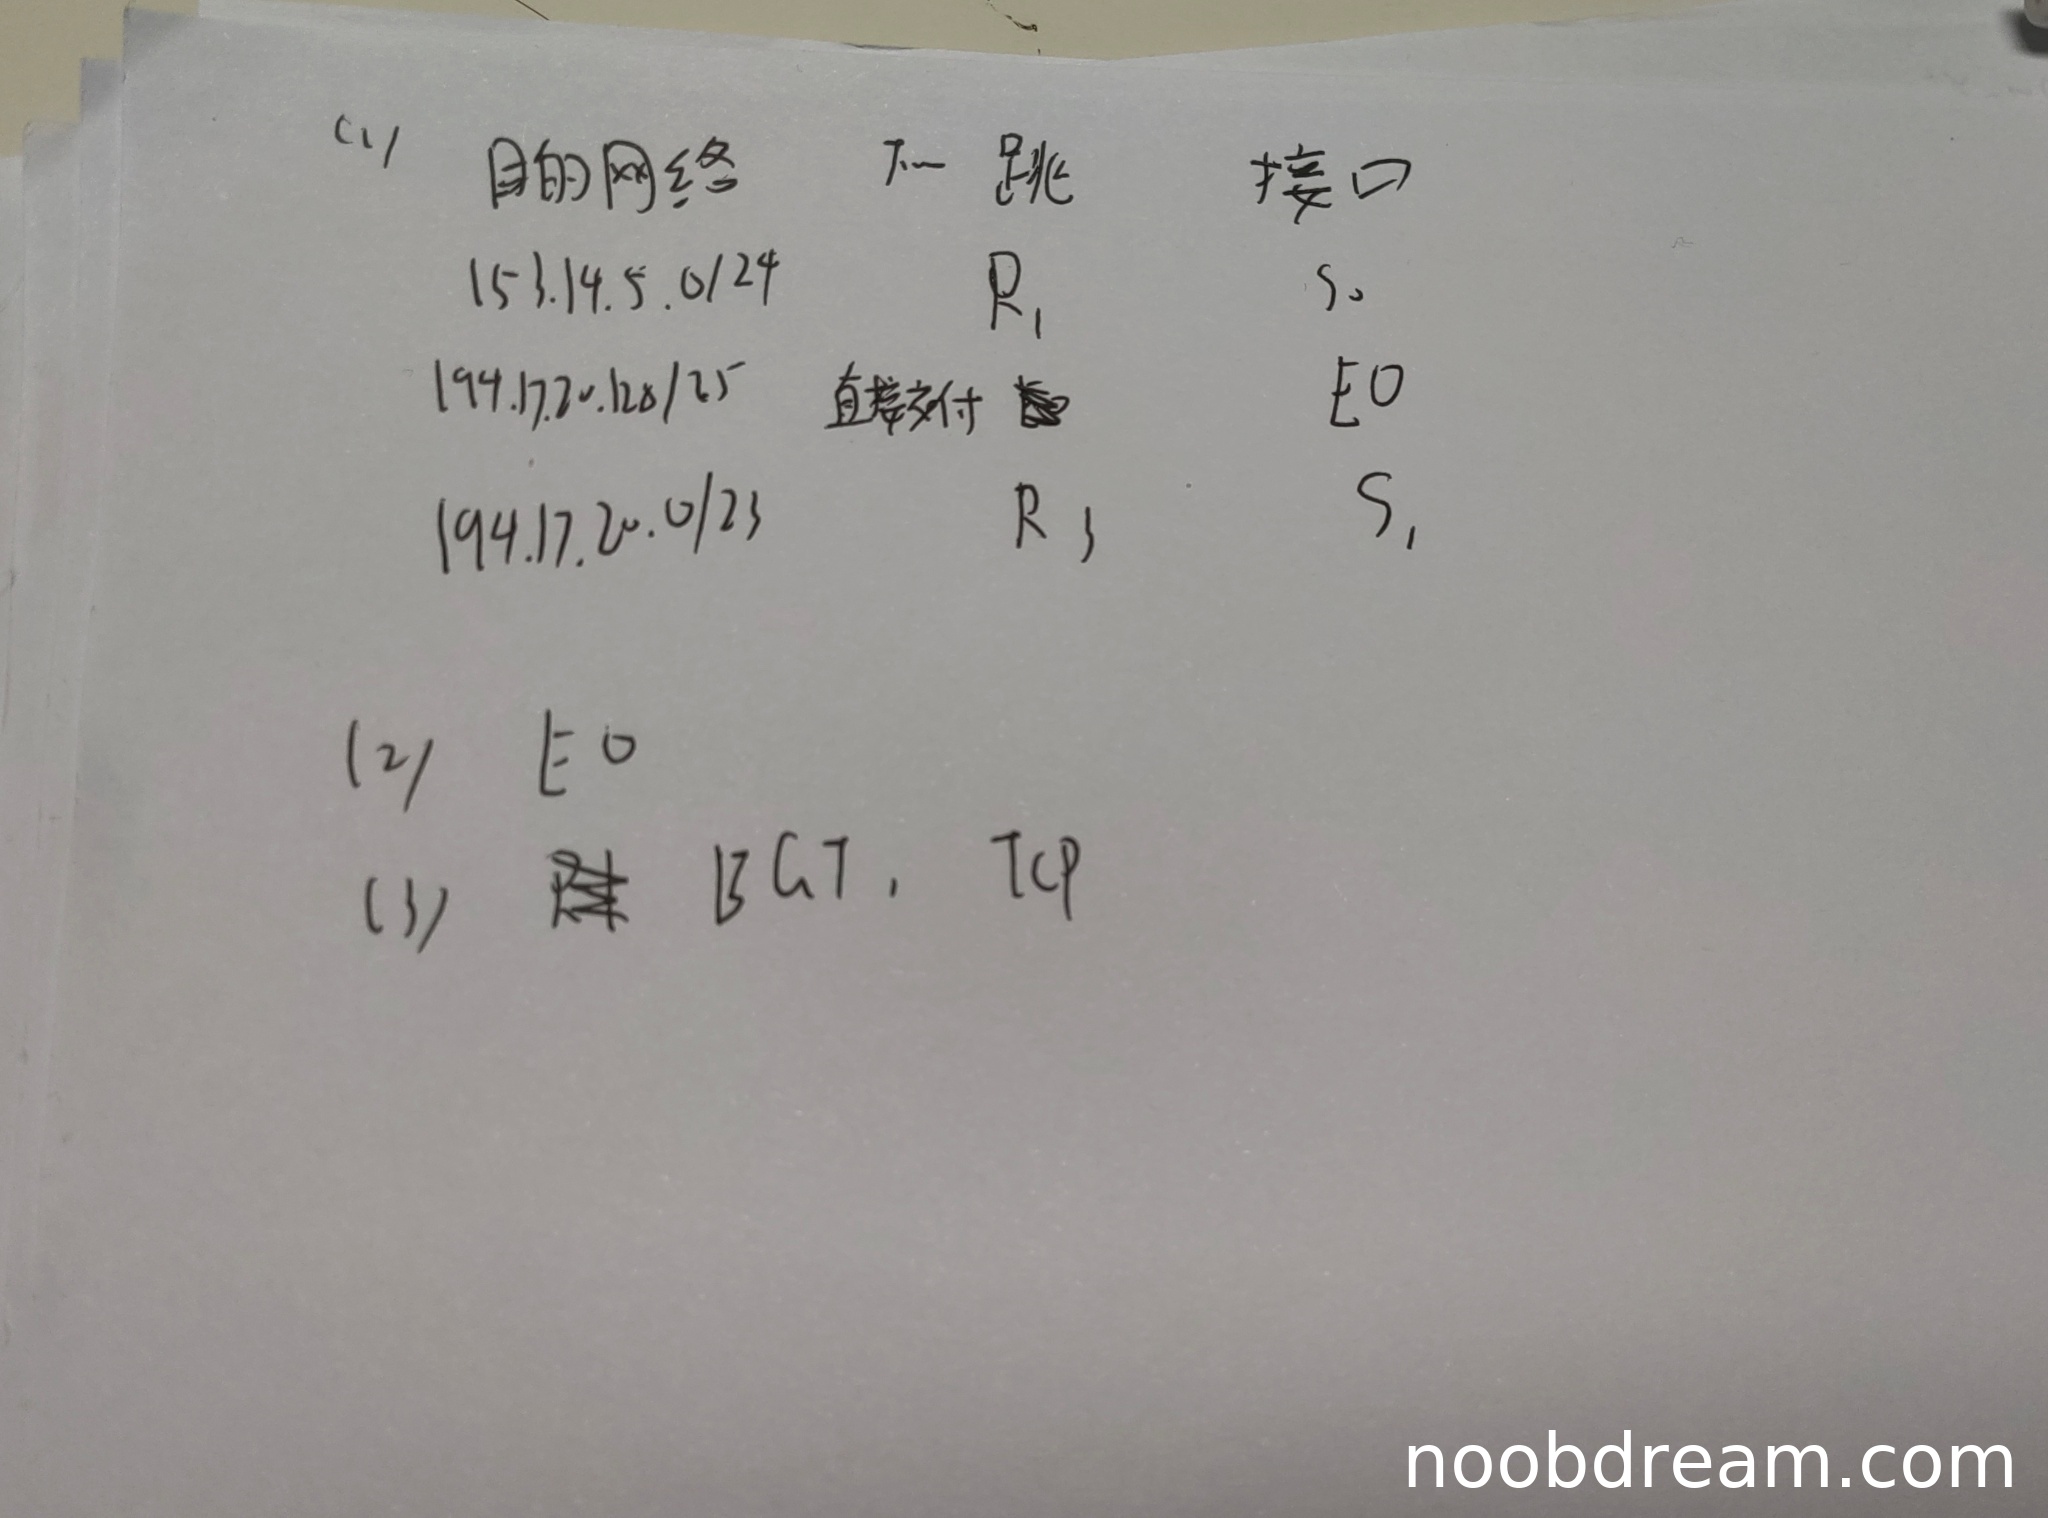 (1) 目的网络 下一跳 接口
153.14.5.0/24 R1 S0
194.17.20.128/25 直接交付 E0
194.17.20.0/23 R3 S1
(2) E0
(3) BGT, TCP
noobdream.com